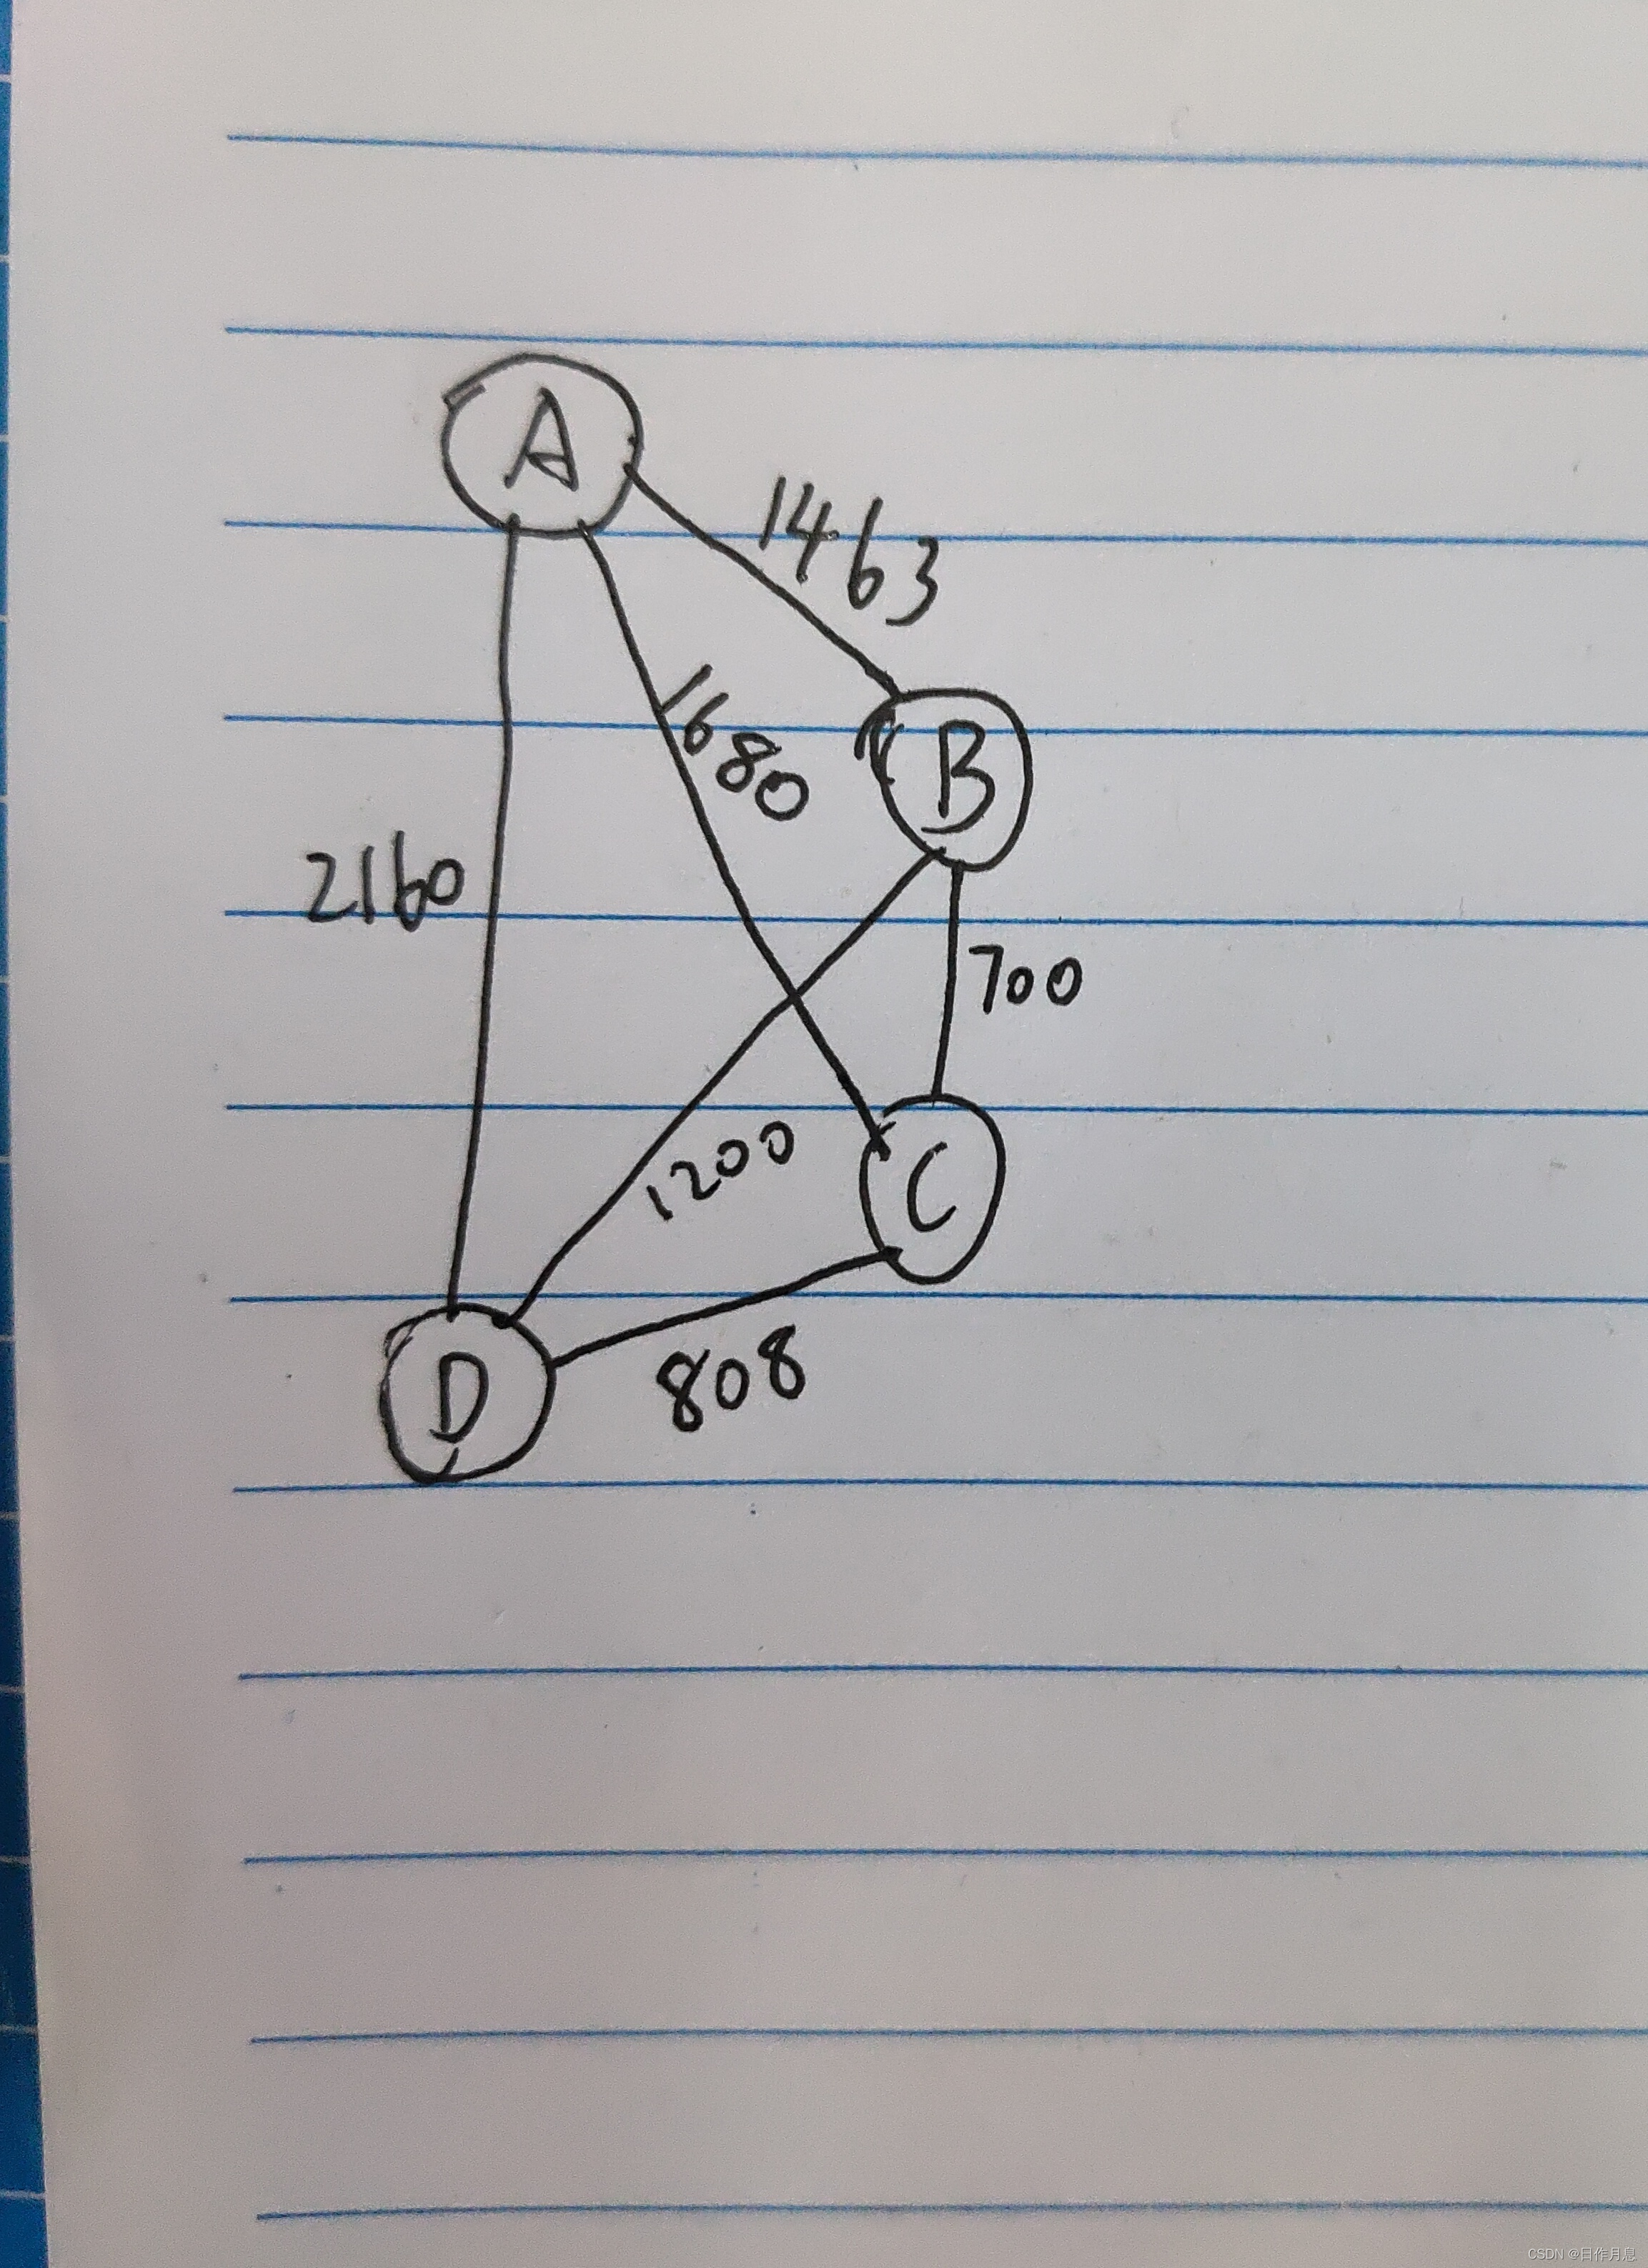 A
1463
1680
B
2160
700
1200
C
808
D
CSDN @日作月息